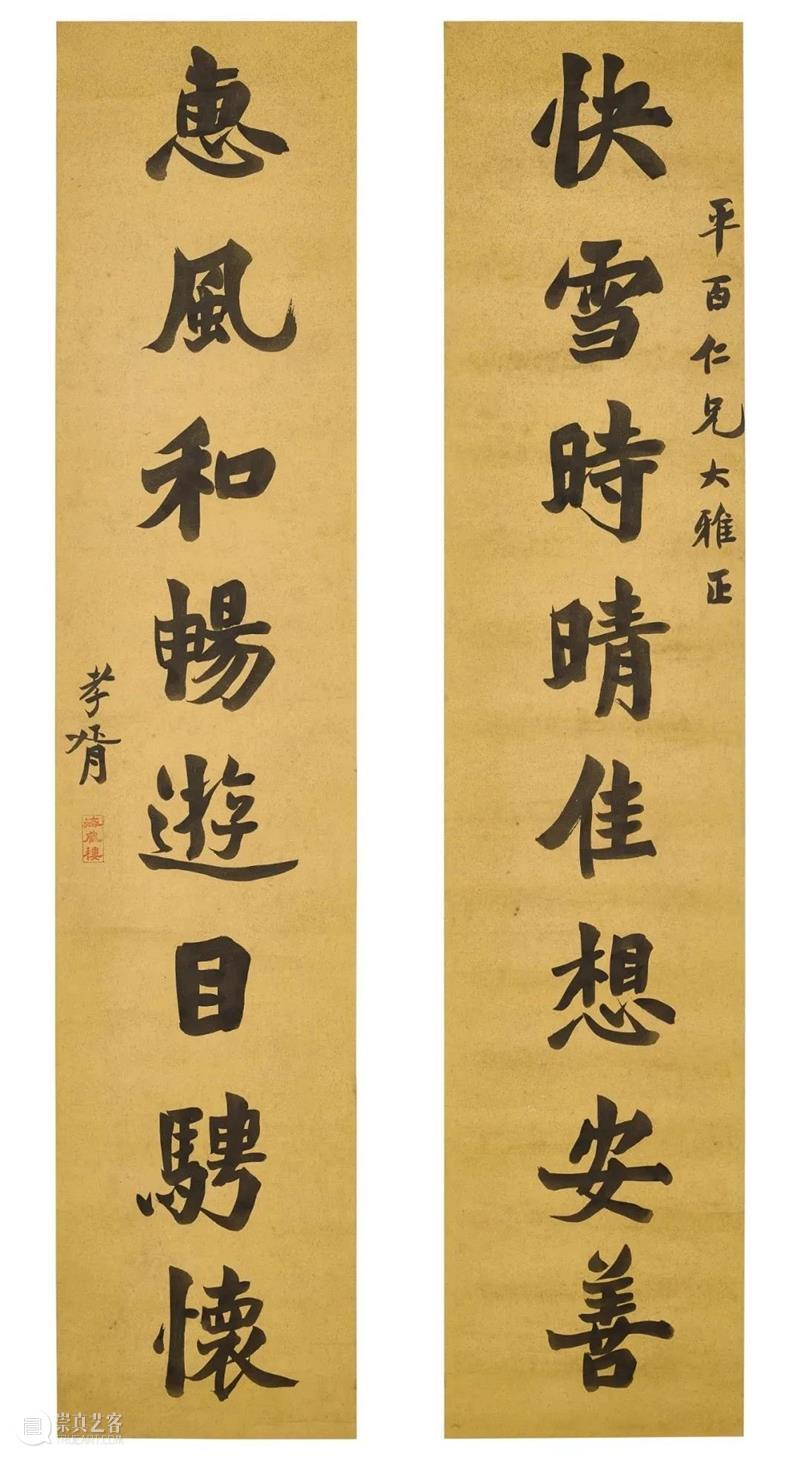 平百仁兄大雅正
快雪時晴佳想安善
惠風和暢遊目騁懷
孝胥
海藏樓
崇真艺客
TRUEART.COM